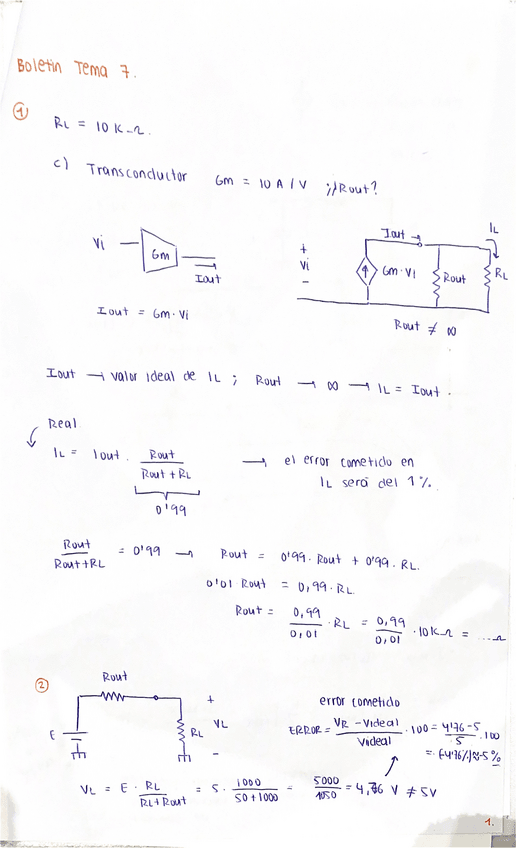 Boletín Tema 7.
1
RL = 10 K Ω.
c) Transconductor Gm = 10 A/V ¿¿Rout?
Vi Gm Iout
+ Vi - Gm·Vi Iout Rout IL RL
Iout = Gm·Vi
Rout ≠ ∞
Iout → valor ideal de IL ; Rout → ∞ → IL = Iout .
Real
IL = Iout · Rout / (Rout + RL) → el error cometido en
IL será del 1 %.
0'99
Rout / (Rout + RL) = 0'99 → Rout = 0'99 · Rout + 0'99 · RL.
0'01 Rout = 0,99 · RL
Rout = 0,99 / 0,01 · RL = 0,99 / 0,01 · 10 K Ω = ....Ω
2
Rout
E RL + VL -
error cometido
ERROR = (VR - Videal) / Videal · 100 = (4'76 - 5) / 5 · 100
= (-4'76%) ≈ 5 %
VL = E · RL / (RL + Rout) = 5 · 1000 / (50 + 1000) = 5000 / 1050 = 4,76 V ≠ 5V
1.